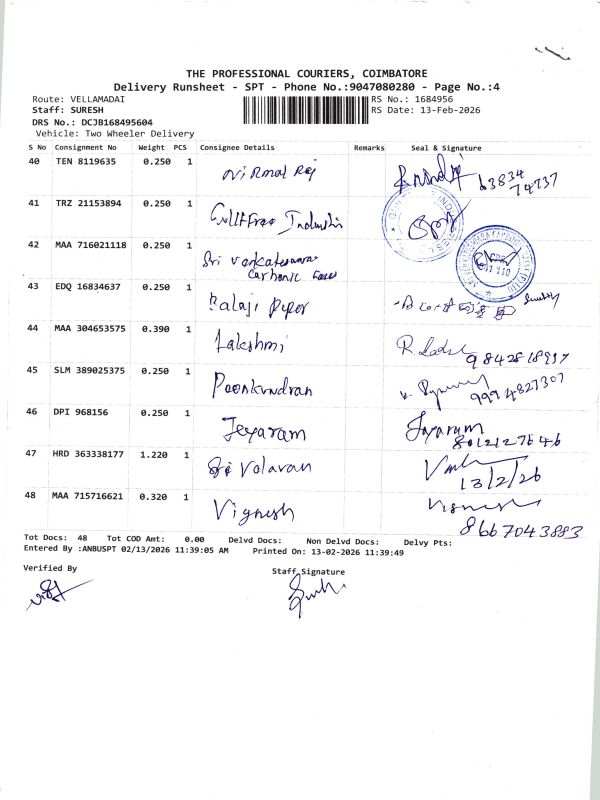 THE PROFESSIONAL COURIERS, COIMBATORE
Delivery Runsheet - SPT - Phone No.:9047080280 - Page No.:4
Route: VELLAMADAI RS No.: 1684956
Staff: SURESH RS Date: 13-Feb-2026
DRS No.: DCJB168495604
Vehicle: Two Wheeler Delivery
S No Consignment No Weight PCS Consignee Details Remarks Seal & Signature
40 TEN 8119635 0.250 1 Nirmal Raj 63834 74737
41 TRZ 21153894 0.250 1
42 MAA 716021118 0.250 1 Sri Venkateswara Carbonic
43 EDQ 16834637 0.250 1 Balaji Paper
44 MAA 304653575 0.390 1 Lakshmi
45 SLM 389025375 0.250 1 Poonkundran 9994827307
46 DPI 968156 0.250 1 Jeyaram Jayaram
47 HRD 363338177 1.220 1 Sri Velavan 13/2/26
48 MAA 715716621 0.320 1 Vignesh 8667043883
Tot Docs: 48 Tot COD Amt: 0.00 Delvd Docs: Non Delvd Docs: Delvy Pts:
Entered By :ANBUSPT 02/13/2026 11:39:05 AM Printed On: 13-02-2026 11:39:49
Verified By Staff Signature